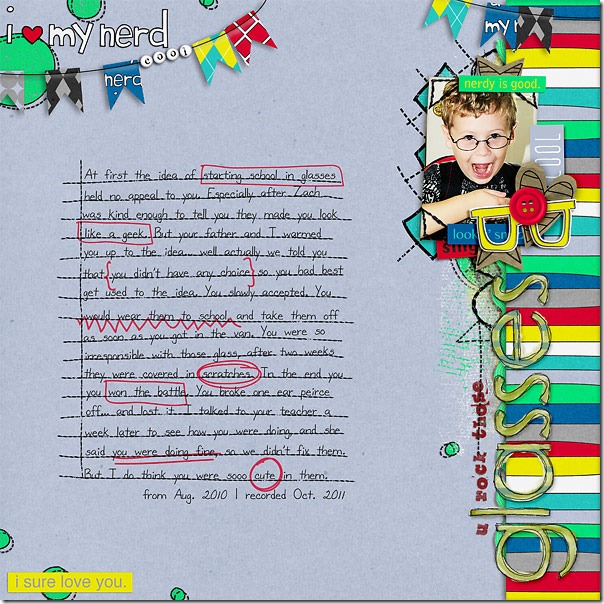 i my nerd
cool
nerd
my n
nerdy is good.
COOL
look
At first the idea of starting school in glasses
held no appeal to you. Especially after Zach
was kind enough to tell you they made you look
like a geek. But your father and I warmed
you up to the idea... well actually we told you
that you didn't have any choice so you had best
get used to the idea. You slowly accepted. You
would wear them to school and take them off
as soon as you got in the van. You were so
irresponsible with those glass, after two weeks
they were covered in scratches. In the end you
you won the battle. You broke one ear peirce
off... and lost it. I talked to your teacher a
week later to see how you were doing, and she
said you were doing fine, so we didn't fix them.
But I do think you were sooo cute in them.
from Aug. 2010 | recorded Oct. 2011
u rock those
glasses
i sure love you.